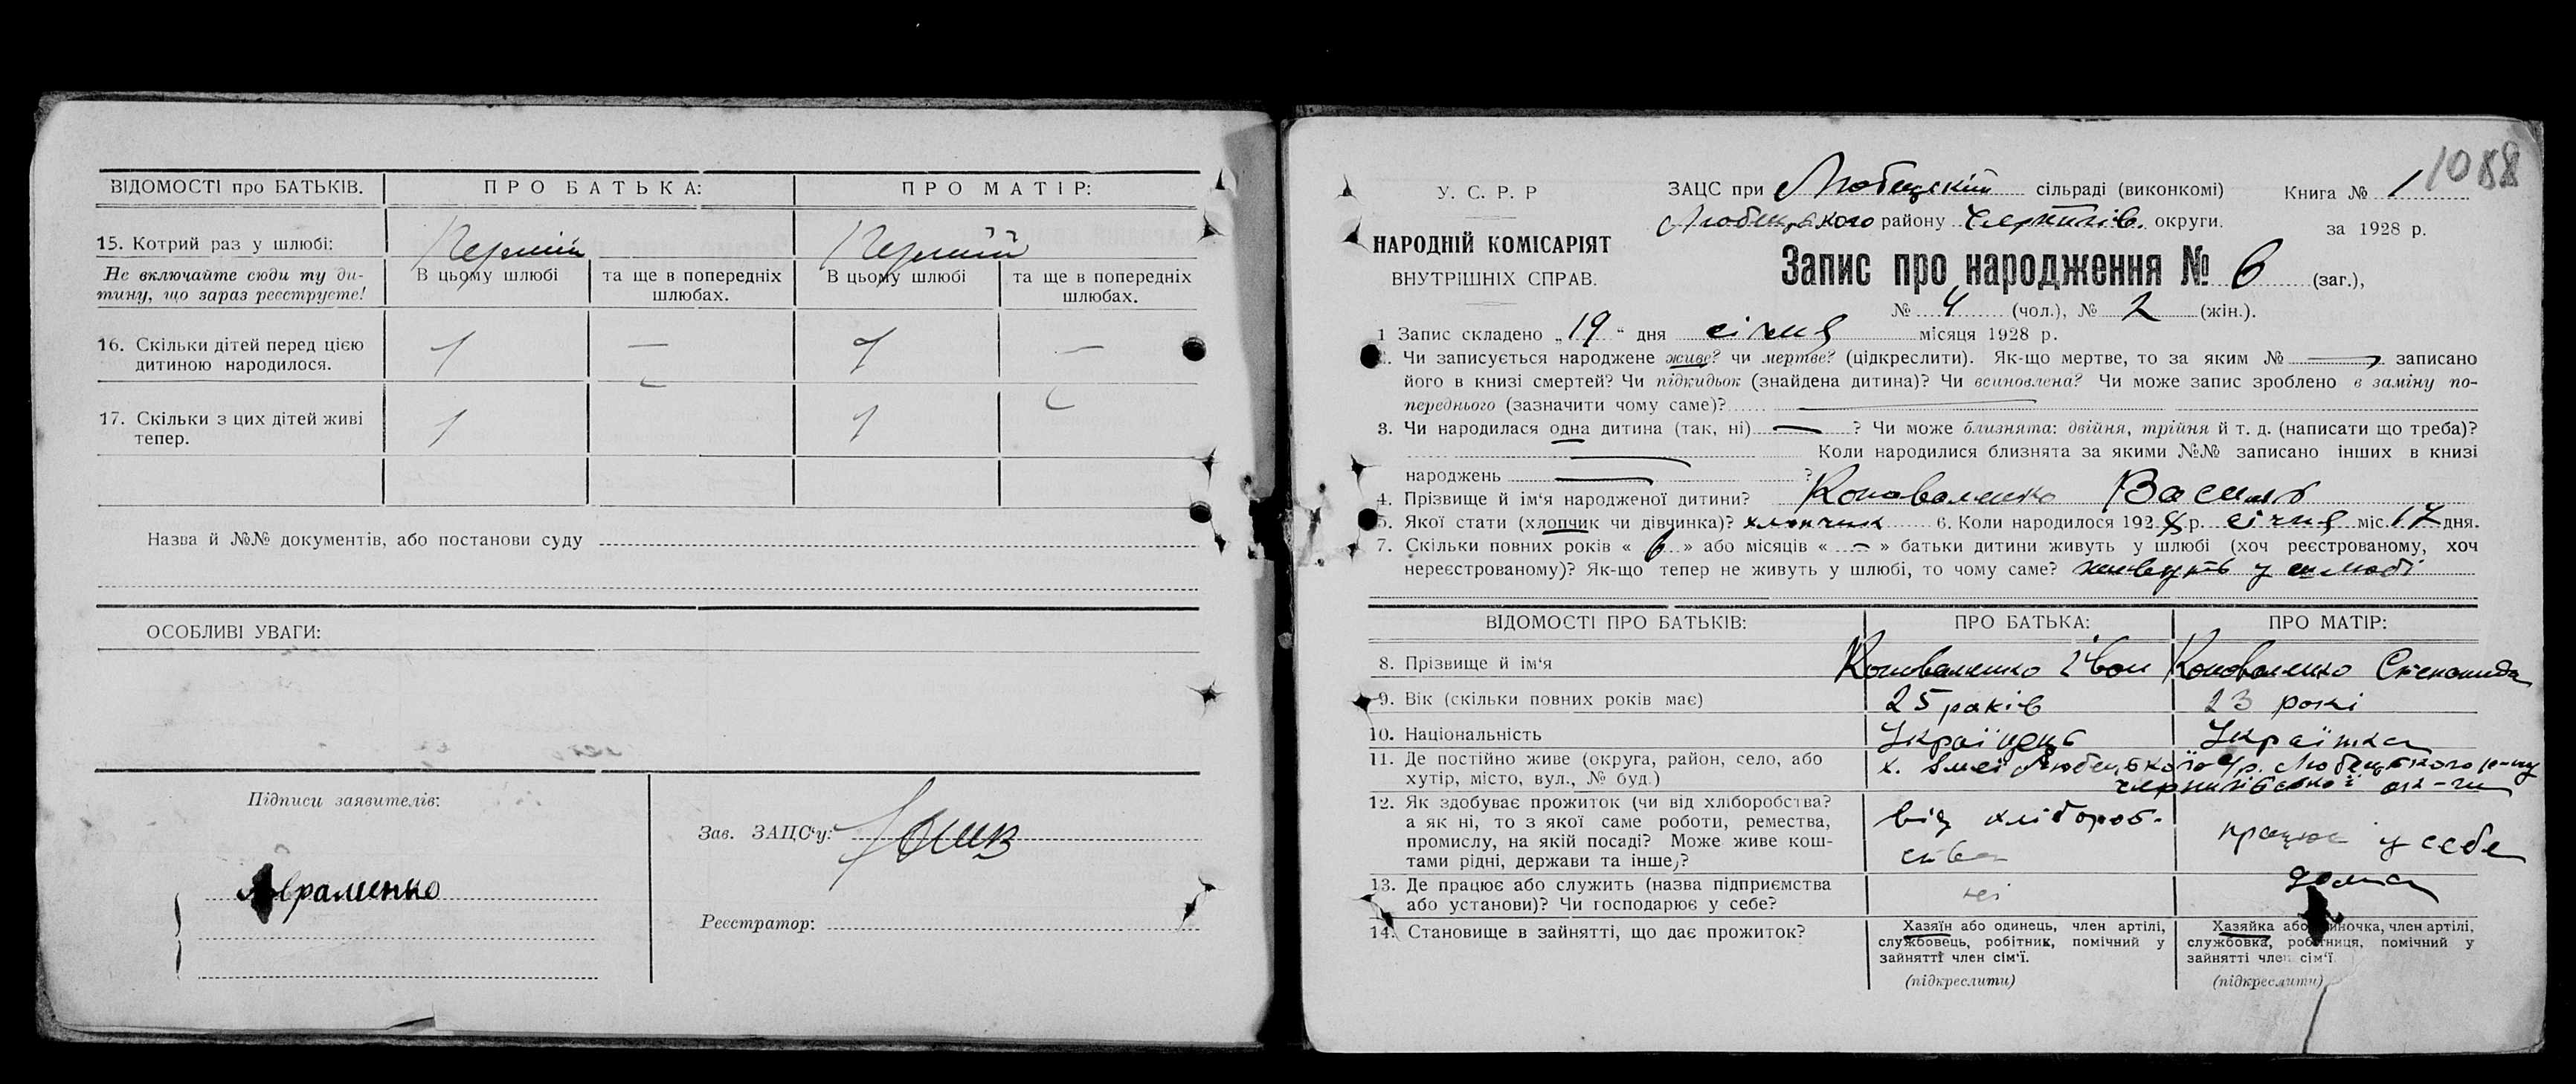 ВІДОМОСТІ про БАТЬКІВ. ПРО БАТЬКА: ПРО МАТІР:
15. Котрий раз у шлюбі: Перший Перший
Не включайте сюди ту ди-
тину, що зараз реєструєте!
В цьому шлюбі та ще в попередніх шлюбах. В цьому шлюбі та ще в попередніх шлюбах.
16. Скільки дітей перед цією
дитиною народилося. 1 — 1 —
17. Скільки з цих дітей живі
тепер. 1 1
Назва й №№ документів, або постанови суду
ОСОБЛИВІ УВАГИ:
Підписи заявителів:
Авраменко
Зав. ЗАЦС'у:
Реєстратор:
1088
У. С. Р. Р
НАРОДНІЙ КОМІСАРІЯТ
ВНУТРІШНІХ СПРАВ.
ЗАЦС при Любецькій сільраді (виконкомі)
Любецького району Чернигів. округи.
Книга № 1
за 1928 р.
Запис про народження № 6 (заг.),
№ 4 (чол.), № 2 (жін.).
1 Запис складено „19“ дня січня місяця 1928 р.
2. Чи записується народжене живе? чи мертве? (підкреслити). Як-що мертве, то за яким № — записано
його в книзі смертей? Чи підкидьок (знайдена дитина)? Чи всиновлена? Чи може запис зроблено в заміну по-
переднього (зазначити чому саме)?
3. Чи народилася одна дитина (так, ні) — ? Чи може близнята: двійня, трійня й т. д. (написати що треба)?
— Коли народилися близнята за якими №№ записано інших в книзі
народжень — ?
4. Прізвище й ім'я народженої дитини? Коноваленко Василь
5. Якої стати (хлопчик чи дівчинка)? хлопчик 6. Коли народилося 1928 р. січня міс. 17 дня.
7. Скільки повних років « 6 » або місяців « — » батьки дитини живуть у шлюбі (хоч реєстрованому, хоч
нереєстрованому)? Як-що тепер не живуть у шлюбі, то чому саме? живуть у шлюбі
ВІДОМОСТІ ПРО БАТЬКІВ: ПРО БАТЬКА: ПРО МАТІР:
8. Прізвище й ім'я Коноваленко Іван Коноваленко Степанида
9. Вік (скільки повних років має) 25 раків 23 рокі
10. Національність Українець Українка
11. Де постійно живе (округа, район, село, або
хутір, місто, вул., № буд.)
х. Змеї Любецької с/р. Любецького р-ну
Чернигівської окр-ги
12. Як здобуває прожиток (чи від хліборобства?
а як ні, то з якої саме роботи, ремества,
промислу, на якій посаді? Може живе кош-
тами рідні, держави та інше)?
від хлібороб-
ства
працює у себе
дома
13. Де працює або служить (назва підприємства
або установи)? Чи господарює у себе?
ні
14. Становище в зайнятті, що дає прожиток?
Хазяїн або одинець, член артілі,
службовець, робітник, помічний у
зайнятті член сім'ї.
(підкреслити)
Хазяйка або одиночка, член артілі,
службовка, робітниця, помічний у
зайнятті член сім'ї
(підкреслити)